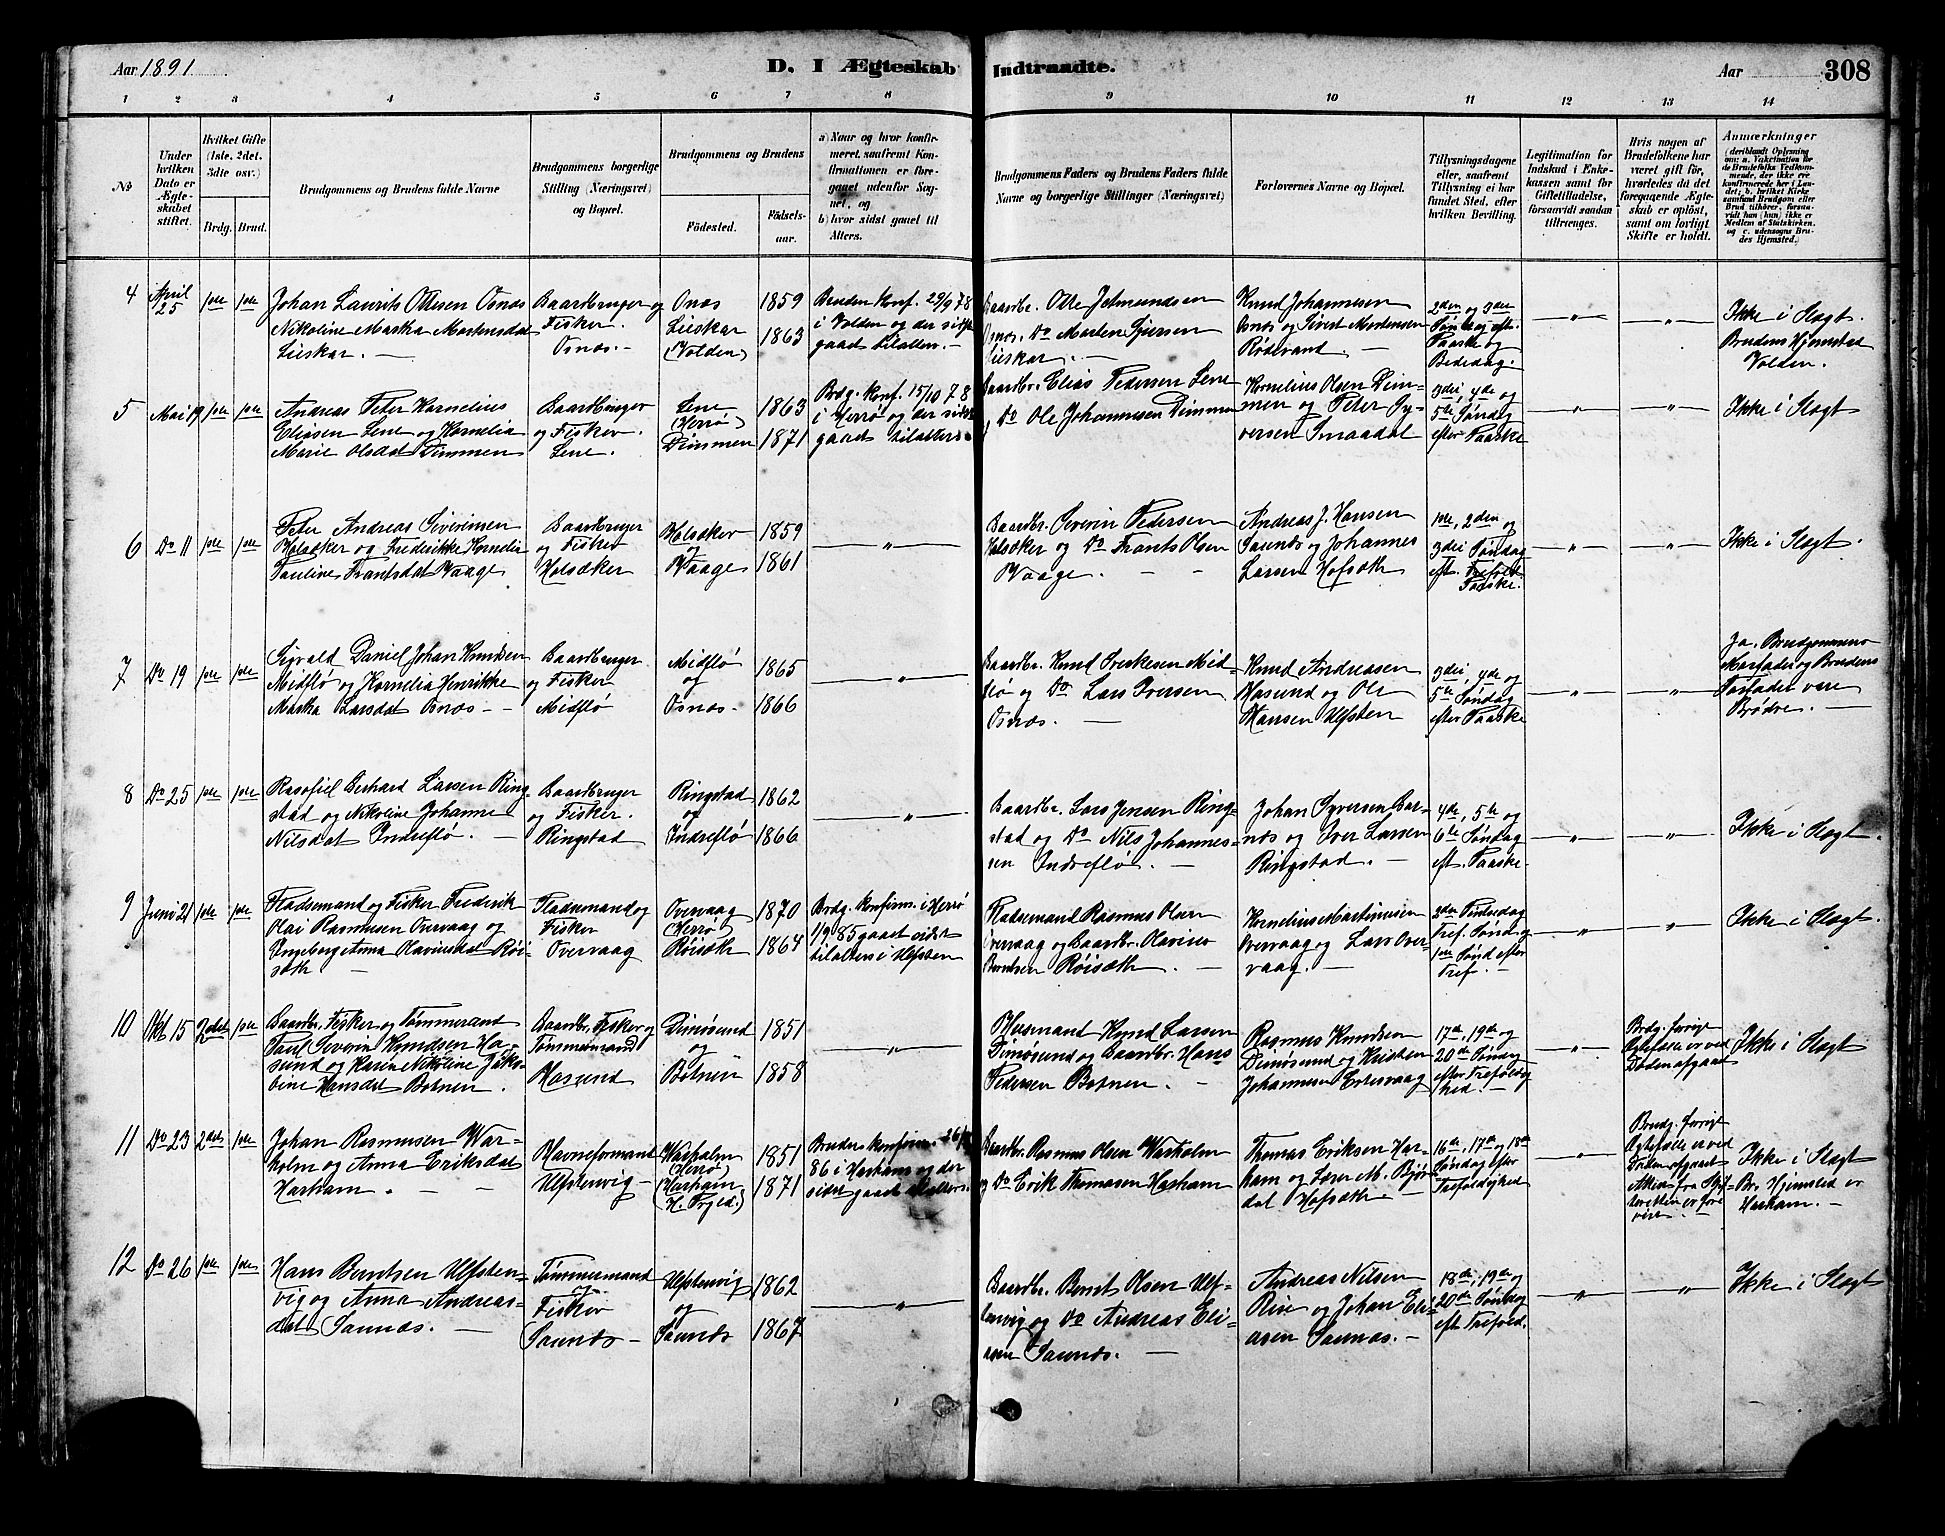 Aar 1891
D. I Ægteskab Indtraadte.
Aar 308
1 2 3 4 5 6 7 8 9 10 11 12 13 14
No
Under hvilken Dato er Ægteskabet stiftet.
Hvilket Gifte (1ste, 2det, 3die osv.)
Brdg. Brud.
Brudgommens og Brudens fulde Navne
Brudgommens borgerlige Stilling (Næringsvei) og Bopæl.
Brudgommens og Brudens
Fødested.
Fødselsaar.
a) Naar og hvor konfirmeret, saafremt Konfirmationen er foregaaet udenfor Sognet, og
b) hvor sidst gaaet til Alters.
Brudgommens Faders og Brudens Faders fulde Navne og borgerlige Stillinger (Næringsvei)
Forlovernes Navne og Bopæl.
Tillysningsdagene eller, saafremt Tillysning ei har fundet Sted, efter hvilken Bevilling.
Legitimation for Indskud i Enkekassen samt for Giftetilladelse, forsaavidt saadan tiltrænges.
Hvis nogen af Brudefolkene har været gift før, hvorledes da det foregaaende Ægteskab er opløst, samt om lovligt Skifte er holdt.
Anmærkninger (deriblandt Oplysning om: a. Vakcination for de Brudefolks Vedkommende, der ikke ere konfirmerede her i Landet; b. hvilket Kirkesamfund Brudgom eller Brud tilhører, forsaavidt han (hun) ikke er Medlem af Statskirken, og c. udensogns Brudes Hjemsted.)
4 April 25 1ste 1ste
Johan Laurits Ottesen Osnæs
Nikoline Maska Martensdat
Lieskar. —
Baardbruger og
Fisker.
Osnæs. –
Osnæs
Lieskar
(Volden)
1859
1863
Bruden konf. 29/9 78
i Volden og der sidst
gaaet til alters. –
Baardbr. Otte Jetmundsen
Osnæs. Do Marten Sjursen
Lieskar. —
Knud Johannesen
Osnæs og Sivert Mortensen
Rødsvand. —
2den og 3die
Sønd. og eft.
Paaske og
Bededag.
— " — — " —
Ikke i Slægt.
Brudens Hjemsted
Volden.
5 Mai 19 1ste 1ste
Andreas Peter Kornelius
Eliasen Lene og Kornelia
Marie Olsdat Dimmen
Baardbruger
og Fisker
Lene.
Lene
(Herrø)
Dimmen
1863
1871
Brdg. konf. 15/10 78
i Herrø og der sidst
gaaet til alters.
Baardbr. Elias Pedersen Lene
og Do Ole Johannesen Dimmen
Kornelius Olsen Dimmen
og Peter Syversen
Smaadal
3die, 4de og
5te Søndag
efter Paaske
— " — — " —
Ikke i Slægt
6 Do 11 1ste 1ste
Peter Andreas Siverinsen
Holsæker og Frederikke Kornelia
Pauline Frantsdat Waage
Baardbruger
og Fisker
Holsæker
Holsæker
og
Waage
1859
1861
— " —
Baardbr. Severin Pedersen
Holsæker og Do Frants Olsen
Waage. – –
Andreas J. Hansen
Saunæs og Johannes
Larsen Hofsæth
1ste, 2den og
3die Søndag
eft.
Paaske.
— " — — " —
Ikke i Slægt.
7 Do 19 1ste 1ste
Sigvald Daniel Johan Knudsen
Midflø og Kornelia Henrikke
Maska Larsdat Osnæs – –
Baardbruger
og Fisker
Midflø
Midflø
og
Osnæs.
1865
1866
— " —
Baardbr. Knud Sivertsen Midflø
og Do Lars Iversen
Osnæs. —
Knud Andreasen
Hasund og Ole
Hansen Ulfsten
3die, 4de og
5te Søndag
efter Paaske
— " — — " —
Ja. Brudgommens
Morfader og Brudens
Farfader vare
Brødre. —
8 Do 25 1ste 1ste
Berhard Larsen Ringstad
og Nikoline Johanne
Nilsdat Indreflø. —
Baardbruger
og Fisker.
Ringstad
Ringstad
og
Indreflø
1862
1866
— " —
Baardbr. Lars Jensen Ringstad
og Do Nils Johannessen
Indreflø. —
Johan Syversen Barnæs
og Iver Larsen
Ringstad. —
4de, 5te og
6te Søndag
eft. Paaske.
— " — — " —
Ikke i Slægt.
9 Juni 21 1ste 1ste
Pladsemand og Fisker Frederik
Olai Rasmusen Overvaag og
Ingeborg Anna Olavinsdat Røisæth
—
Pladsemand og
Fisker
Overvaag
Overvaag
(Herrø)
Røisæth
1870
1864
Brdg. konfirm. i Herrø
85 gaaet sidst
til alters i Ulfsten
Pladsemand Rasmus Olsen
Overvaag og Baardbr. Olavius
Berntsen Røisæth. —
Kornelius Martinusen
Overvaag og Lars Overvaag.
—
2den Pintsedag
Tref. Søndag
1ste Sønd efter
Tref. –
— " — — " —
Ikke i Slægt.
10 Okt 15 2det 1ste
Baardbr. Fisker og Tømmermand
Paul Severin Knudsen Hasund
og Karen Nikoline Jakobine
Hansdat Botnen.
Baardbr. Fisker og
Tømmermand
Hasund
Dimøsund
og
Botnen
1851
1858
— " —
Husmand Knud Larsen
Dimøsund og Baardbr. Hans
Pedersen Botnen. –
Rasmus Knudsen
Dimøsund og Kristen
Johannesen Ertesvaag
17de, 19de og
20de Søndag
efter Trefoldighed.
–
— " —
Brdg. forrige
Egtefælle er ved
Døden afgaaet
Ikke i Slægt
11 Do 23 2det 1ste
Johan Rasmusen Warholm
og Anna Eriksdat
Harham. – –
Havneformand
Ulfstenvig –
Warholm
(Herrø)
(Harham
H. Prgjd.)
1851
1871
Bruden konfirm. 26/
86 i Harham og der
sidst gaaet til alters.
Baardbr. Rasmus Olsen Warholm
og Do Erik Thomasen Harham
Thomas Eriksen Harham
og
Hofsæth –
16de, 17de og 18de
Søndag Efter
Trefoldighed
— " —
Brdg. forrige
Egtefælle er ved
Døden afgaaet
Attest fra Skifteretten er fore
vist. –
Ikke i Slægt
Br. Hjemsted er
Harham. –
12 Do 26 1ste 1ste
Hans Berntsen Ulfstenvig
og Anna Andreasdat
Saunæs. —
Tømmermand
og
Fisker
Saunæs –
Ulfstenvig
og
Saunæs
1862
1867
— " —
Baardbr. Bernt Olsen Ulfstenvig
og Do Andreas Eliasen
Saunæs. —
Andreas Nilsen
Rise og Johan Eliasen
Saunæs. –
18de, 19de og
20de Søndag
eft Trefold.
— " — — " —
Ikke i Slægt